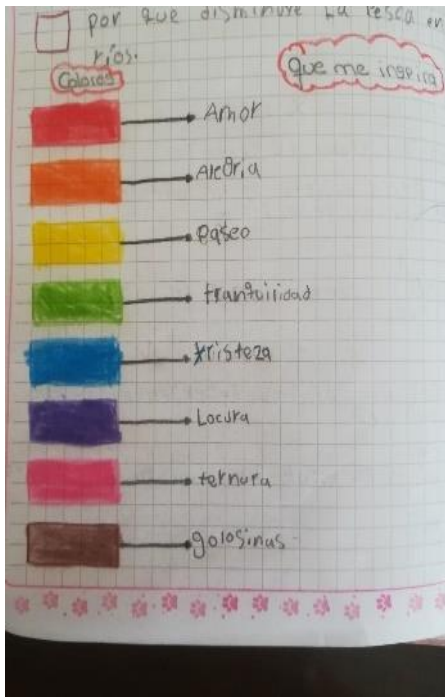 por que disminuye la pesca en
ríos.
Colores
que me inspira
Amor
Alegria
paseo
tranquilidad
tristeza
Locura
ternura
golosinas